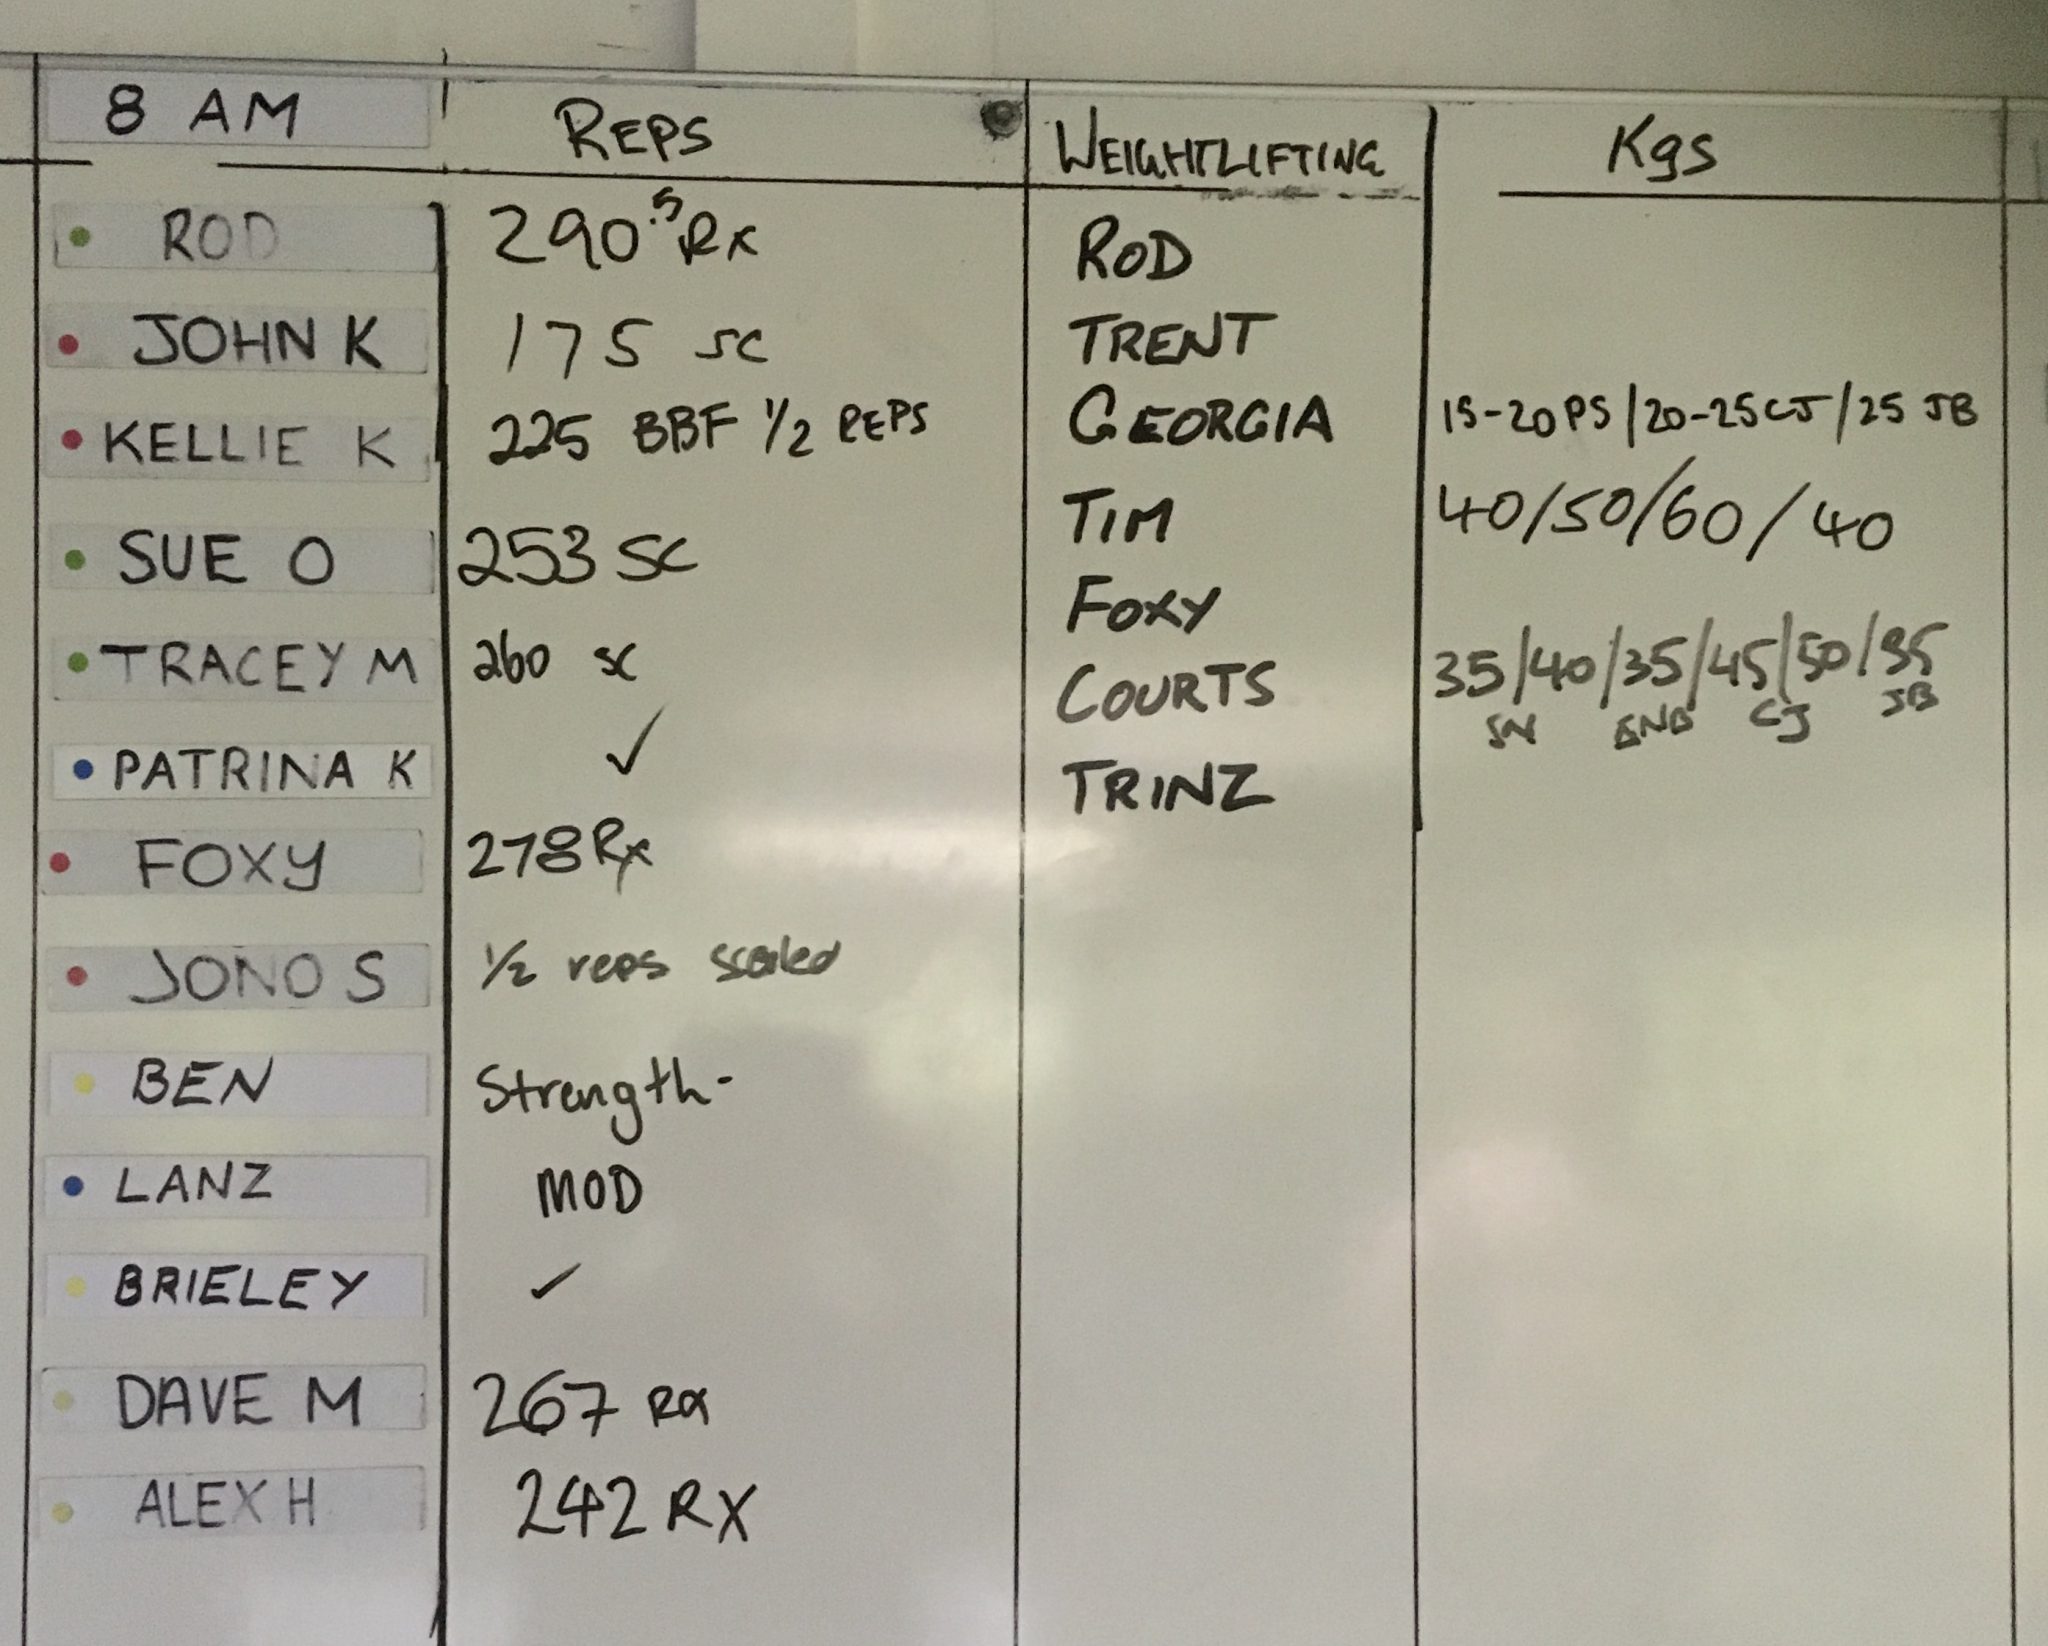 8 AM REPS WEIGHTLIFTING Kgs
ROD 290.5 Rx ROD
JOHN K 175 SC TRENT
KELLIE K 225 BBF 1/2 REPS GEORGIA 15-20 PS / 20-25 CJ / 25 JB
SUE O 253 SC TIM 40/50/60/40
FOXY
TRACEY M 260 SC COURTS 35/40/35/45/50/35
SN SNB CJ JB
PATRINA K ✓ TRINZ
FOXY 278 Rx
JONO S 1/2 reps scaled
BEN Strength-
LANZ MOD
BRIELEY ✓
DAVE M 267 RX
ALEX H 242 RX